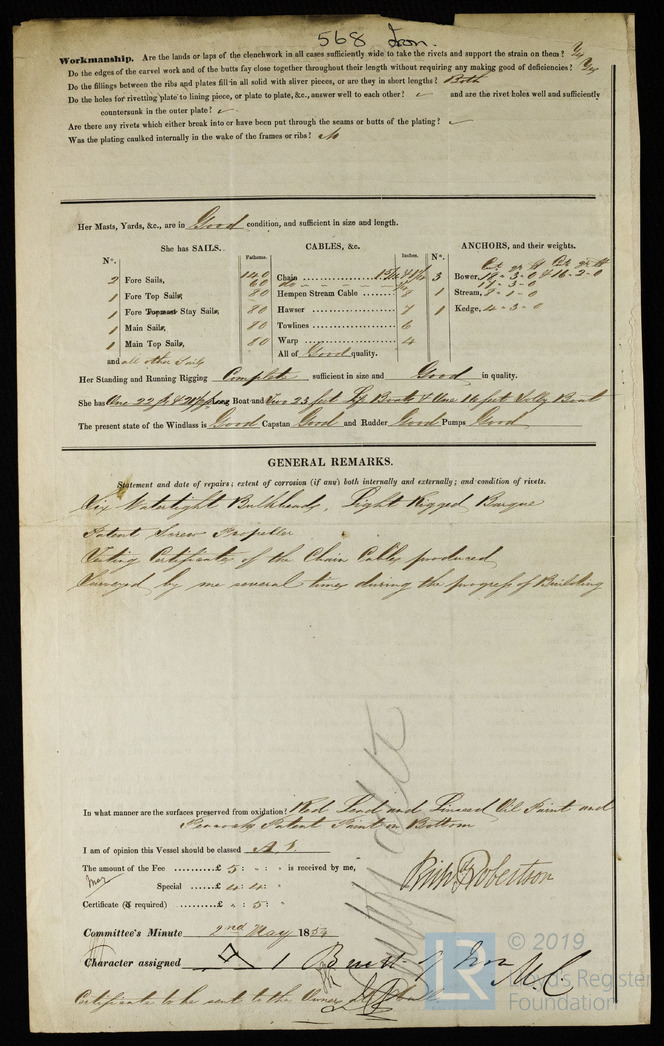 568 Iron.
Workmanship. Are the lands or laps of the clenchwork in all cases sufficiently wide to take the rivets and support the strain on them?
Do the edges of the carvel work and of the butts fay close together throughout their length without requiring any making good of deficiencies?
Do the fillings between the ribs and plates fill in all solid with sliver pieces, or are they in short lengths? Both
Do the holes for rivetting plate to lining piece, or plate to plate, &c., answer well to each other? ✓ and are the rivet holes well and sufficiently
countersunk in the outer plate? ✓
Are there any rivets which either break into or have been put through the seams or butts of the plating? ✓
Was the plating caulked internally in the wake of the frames or ribs? No
Her Masts, Yards, &c., are in Good condition, and sufficient in size and length.
She has SAILS.
N°.
2 Fore Sails,
1 Fore Top Sails,
1 Fore Topmast Stay Sails,
1 Main Sails,
1 Main Top Sails,
and all other Sails
CABLES, &c.
Fathoms. Inches.
140 Chain
60 do
80 Hempen Stream Cable 9
80 Hawser 7
80 Towlines 6
80 Warp 4
All of Good quality.
ANCHORS, and their weights.
N°.
3 Bower,
1 Stream, 8-1-0
1 Kedge, 4-3-0
Her Standing and Running Rigging Complete sufficient in size and Good in quality.
She has One 22 ft & Long Boat and Two 23 feet Life Boats & One 16 feet Jolly Boat
The present state of the Windlass is Good Capstan Good and Rudder Good Pumps Good
GENERAL REMARKS.
Statement and date of repairs; extent of corrosion (if any) both internally and externally; and condition of rivets.
Six Watertight Bulkheads, Light Rigged Barque
Patent Screw Propeller
Testing Certificates of the Chain Cables produced
Surveyed by me several times during the progress of Building
In what manner are the surfaces preserved from oxidation? Red Lead and Linseed Oil Paint and
Patent Paint on Bottom
I am of opinion this Vessel should be classed A 1.
The amount of the Fee £ 5 : " : " is received by me,
Special £ 4 : 4 : "
Certificate (if required) £ " : 5 : "
Robertson
Committee's Minute 2nd May 1854
Character assigned A 1 Built of Iron M.C.
Certificate to be sent to the Owner
© 2019
LR
Lloyd's Register
Foundation